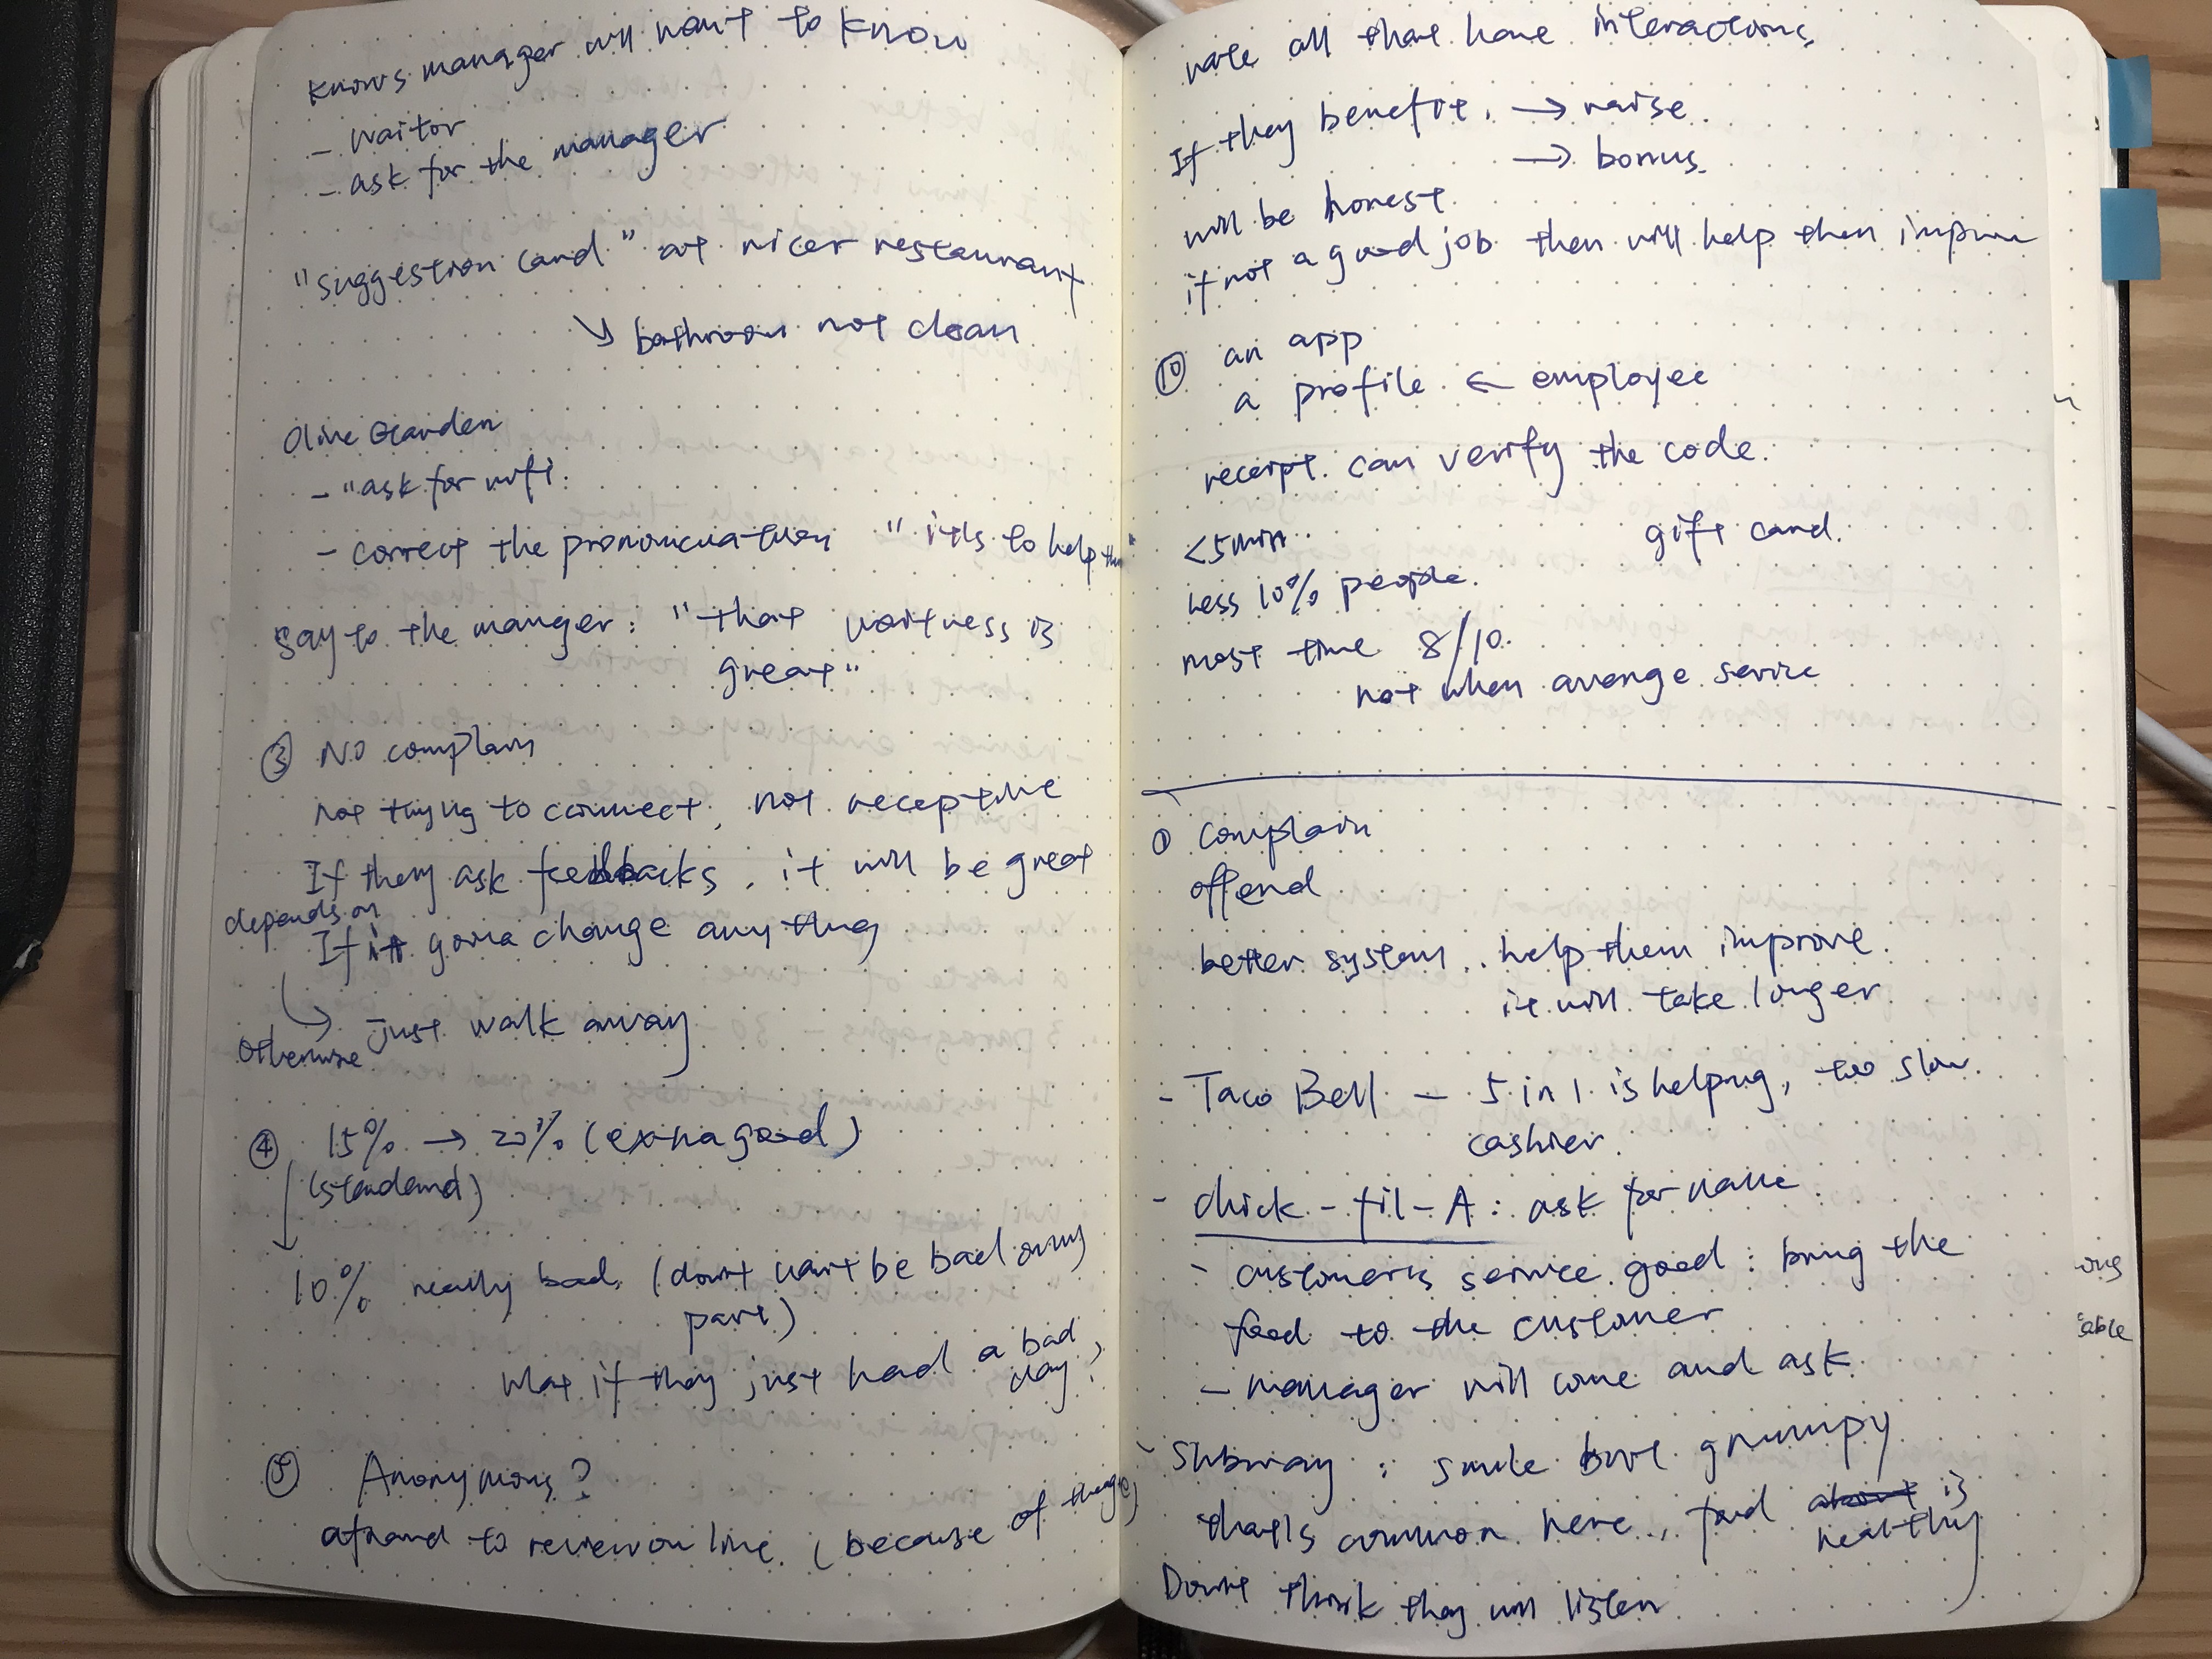 knows manager will want to know
- waitor
- ask for the manager
"suggestion card" at nicer restaurant
↘ bathroom not clean
Olive Garden
- "ask for wifi.
- correct the pronounciation "it's to help
say to the manger: "that waitness is
great"
③ NO complain
not trying to connect, not receptive
If they ask feedbacks, it will be great
depends on
If it gonna change anything
otherwise
just walk away
④ 15% → 20% (extra good)
(standard)
10% really bad. (don't want be bad on my
part)
if they just had a bad
day)
⑤ Anonymous?
afraid to review on line. (because of
rate all that have interactions.
If they benefit. → raise.
→ bonus.
will be honest.
if not a good job then will help then improve
⑩ an app
a profile ← employee
receipt can verify the code.
<5min.
gift card.
Less 10% people.
most time 8/10.
not when average service
① complain
offend
better system.. help them improve.
it will take longer
- Taco Bell - 5 in 1 is helping, too slow.
cashier.
- chick-fil-A: ask for name.
- customer's service good: bring the
food to the customer
- manager will come and ask.
- Subway: smile but grumpy
that's common here., food is
healthy
Don't think they will listen
ong
able